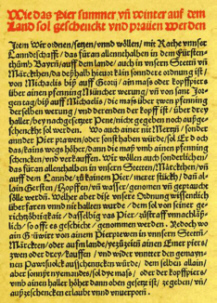 Wie das Pier summer vñ winter auf dem
Land sol geschenckt vnd prauen werden
Item Wir ordnen / setzen / vnnd wöllen / mit Rathe vnnser
Lanndtschafft / das füran allennthalben in dem Fürsten-
thumb Bayrn / auff dem lande / auch in vnsern Stetten vñ
Märckthen / da deßhalb hieuor kain sonndere ordnung ist /
von Michaelis biß auff Georij / ain mass oder kopffpiers
über ainen pfenning Müncher werung / vñ von sant Jor-
gen tag / biß auff Michaelis / die mass über zwen pfenning
derselben werung / vnd derenden der kopff ist / über drey
haller / bey nachgesetzter Pene / nicht gegeben noch außge-
schenckht sol werden. Wo auch ainer nit Mertzn / sonnder
annder Pier prawen / oder sonnst haben würde / sol Er doch
das / kains wegs höher / dann die mass vmb ainen pfenning
schencken / vnd verkauffen. Wir wöllen auch sonnderlichen /
das füran allenthalben in vnsern Stetten / Märckthen / vñ
auff dem Lannde / zu kainem Pier / merer stückh / dann al-
lain Gersten / Hopffen / vñ wasser / genomen vñ gepraucht
sölle werdn. Welher aber dise vnsere Ordnung wissentlich
überfaren vnnd nit hallten wurde / dem sol von seiner ge-
richtzöbrigkait / dasselbig vas Pier / zustraff vnnachläß-
lich / so offt es geschicht / genommen werden. Jedoch wo
ain Güwirt von ainem Pierprewen in vnnsern Stetten /
Märckten / oder aufm lande / yezuzeitn ainen Emer piers /
zwen oder drey / kauffen / vnd wider vnnter den gemaynen
Pawrsuolck außschencken würde / dem selben allain /
aber sonnst nyemandts / sol dye mass / oder der kopffpiers /
vmb ainen haller höher dann oben gesetzt ist / zegeben / vñ
außzeschencken erlaubt vnd vnuerpotn.